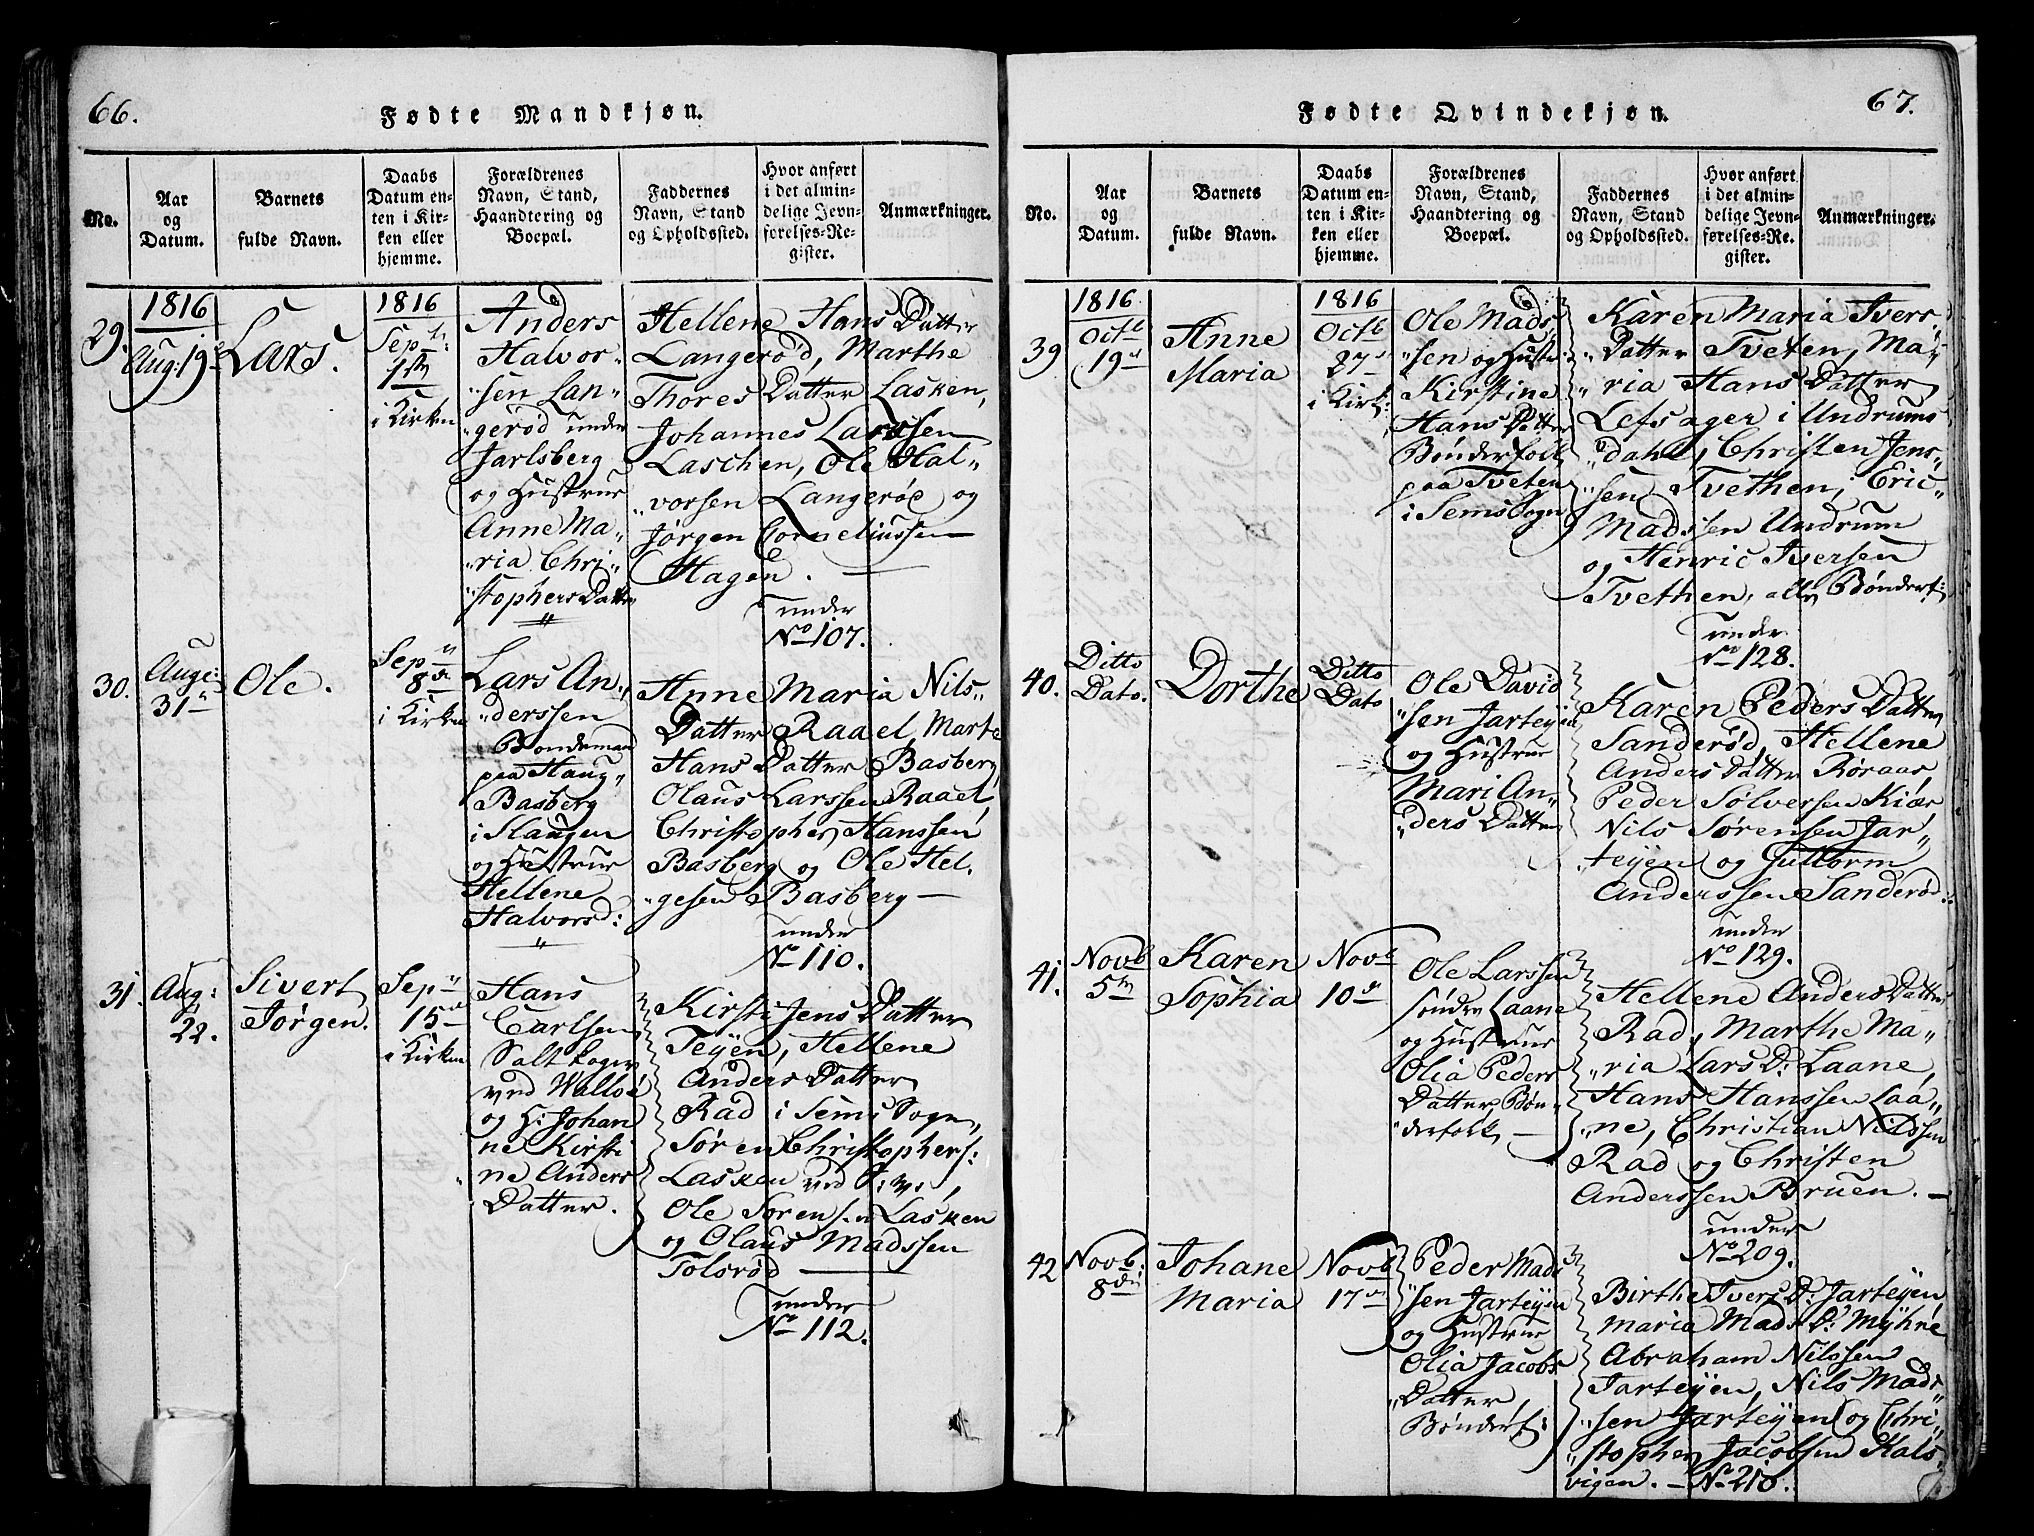 66.
Fødte Mandkjøn.
No.
Aar
og
Datum.
Barnets
fulde Navn.
Daabs
Datum en-
ten i Kir-
ken eller
hjemme.
Forældrenes
Navn, Stand,
Haandtering og
Boepæl.
Faddernes
Navn, Stand
og Opholdssted.
Hvor anført
i det almin-
delige Jevn-
førelses-Re-
gister.
Anmærkninger.
29.
1816
Aug: 19
Lars.
1816
Sept:
1ste
i Kirken
Anders
Halvor-
"sen Lan"
"gerød under
Jarlsberg
og Hustrue
Anne Ma-
"ria Chri-
"stophers Datter
Hellene Hans Datter
Langerød, Marthe
Thores Datter Lasken,
Johannes Larssen
Laschen, Ole Hal-
"vorsen Langerød og
Jørgen Corneliussen
Hagen.
under
No 107.
30.
Auge:
31
Ole.
Sep
8de
i Kirken
Lars An"
"derssen
Bondemand
paa Haug"
Basberg
i Slaugen
og Hustrue
Hellene
Halvorsd:
Anne Maria Nils"
Datter Raael, Marte
Hans Datter Basberg,
Olaus Larssen Raael,
Christopher Hanssen
Basberg og Ole Hel-
"gesen Basberg
under
No 110.
31.
Aug:
22.
Sivert
Jørgen.
Sep
15
i Kirken
Hans
Carlsen
Saltkoger
ved Walløe
og H: Johan
ne Kirsti
ne Anders
Datter.
Kirsti Jens Datter
Teÿen, Hellene
Anders Datter
Rad i Sems Sogn,
Søren Christophers:
Lasken ved
Ole Sørensen Lasken
og Olaus Madssen
Tolsrød
under
No 112.
67.
Fødte Qvindekjøn.
No.
Aar
og
Datum.
Barnets
fulde Navn.
Daabs
Datum en-
ten i Kir-
ken eller
hjemme.
Forældrenes
Navn, Stand,
Haandtering og
Boepæl.
Faddernes
Navn, Stand
og Opholdssted.
Hvor anført
i det almin-
delige Jevn-
førelses-Re-
gister.
Anmærkninger.
39
1816
Octb
19
Anne
Maria
1816
Octb
27
i Kirk:
Ole Mads
"sen og Hustr:
Kirstine
Hans Datter
Bønderfolk
paa Tveten
i Sems Sogn
Karen Maria Ivers
"Datter Tveten, Ma-
"ria Hans Datter
Lefsager i Undrums
"dahl, Christen Jens-
"sen Tvethen, Eric
Madssen Undrum
og Henric Iversen
Tvethen, alle Bønderf:
under
No 128.
40.
Ditto
Dato.
Dorthe
Ditto
Dato
Ole David
"sen Jarteÿen
og Hustrue
Mari An"
"ders Datter
Karen Peders Datter
Sanderød, Hellene
Anders Datter Røraas
Peder Sølversen Kiær
Nils Sørensen Jar"
"teÿen og Guttorm
Anderssen Sanderød.
under
No 129.
41.
Novb
5te
Karen
Sophia
Novb
10
Ole Larssen
Søndre Laane
og Hustrue
Olia Peders
Datter, Bøn-
"derfolk
Hellene Anders Datter
Rad, Marthe Ma-
"ria Lars D: Laane,
Hans Hanssen Laa"
"ne, Christian Nilssen
Rad og Christen
Anderssen Bruen.
under
No 209.
42
Novb:
8de
Johane
Maria
Novb
17
Peder Mad
"sen Jarteÿen
og Hustrue
Olia Jacobs
"Datter,
Bønderf:
Birthe Ivers D: Jarteÿen,
Maria Mads D: Mÿhre
Abraham Nilssen
Jarteÿen, Nils Mads"
"sen Jarteÿen og Chri"
"stopher Jacobsen Kals
vigen. — No 210.